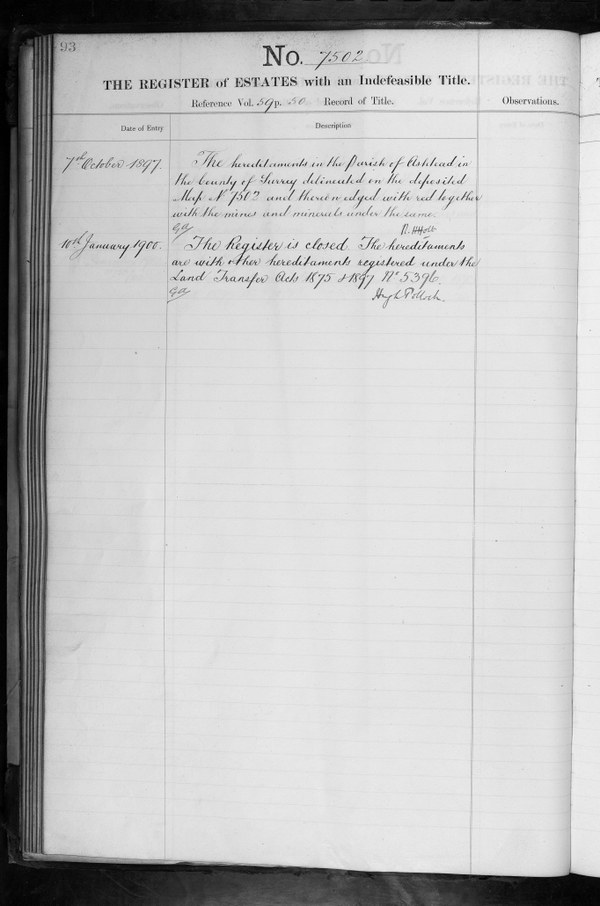 93
No. 7502
THE REGISTER of ESTATES with an Indefeasible Title.
Reference Vol. 59 p. 50 Record of Title.
Observations.
Date of Entry
Description
7th October 1897.
The hereditaments in the Parish of Ashtead in
the County of Surrey delineated on the deposited
Map No 7502 and thereon edged with red together
with the mines and minerals under the same.
10th January 1900.
The Register is closed The hereditaments
are with other hereditaments registered under the
Land Transfer Acts 1875 & 1897 No 5396.
Hugh Pollock.